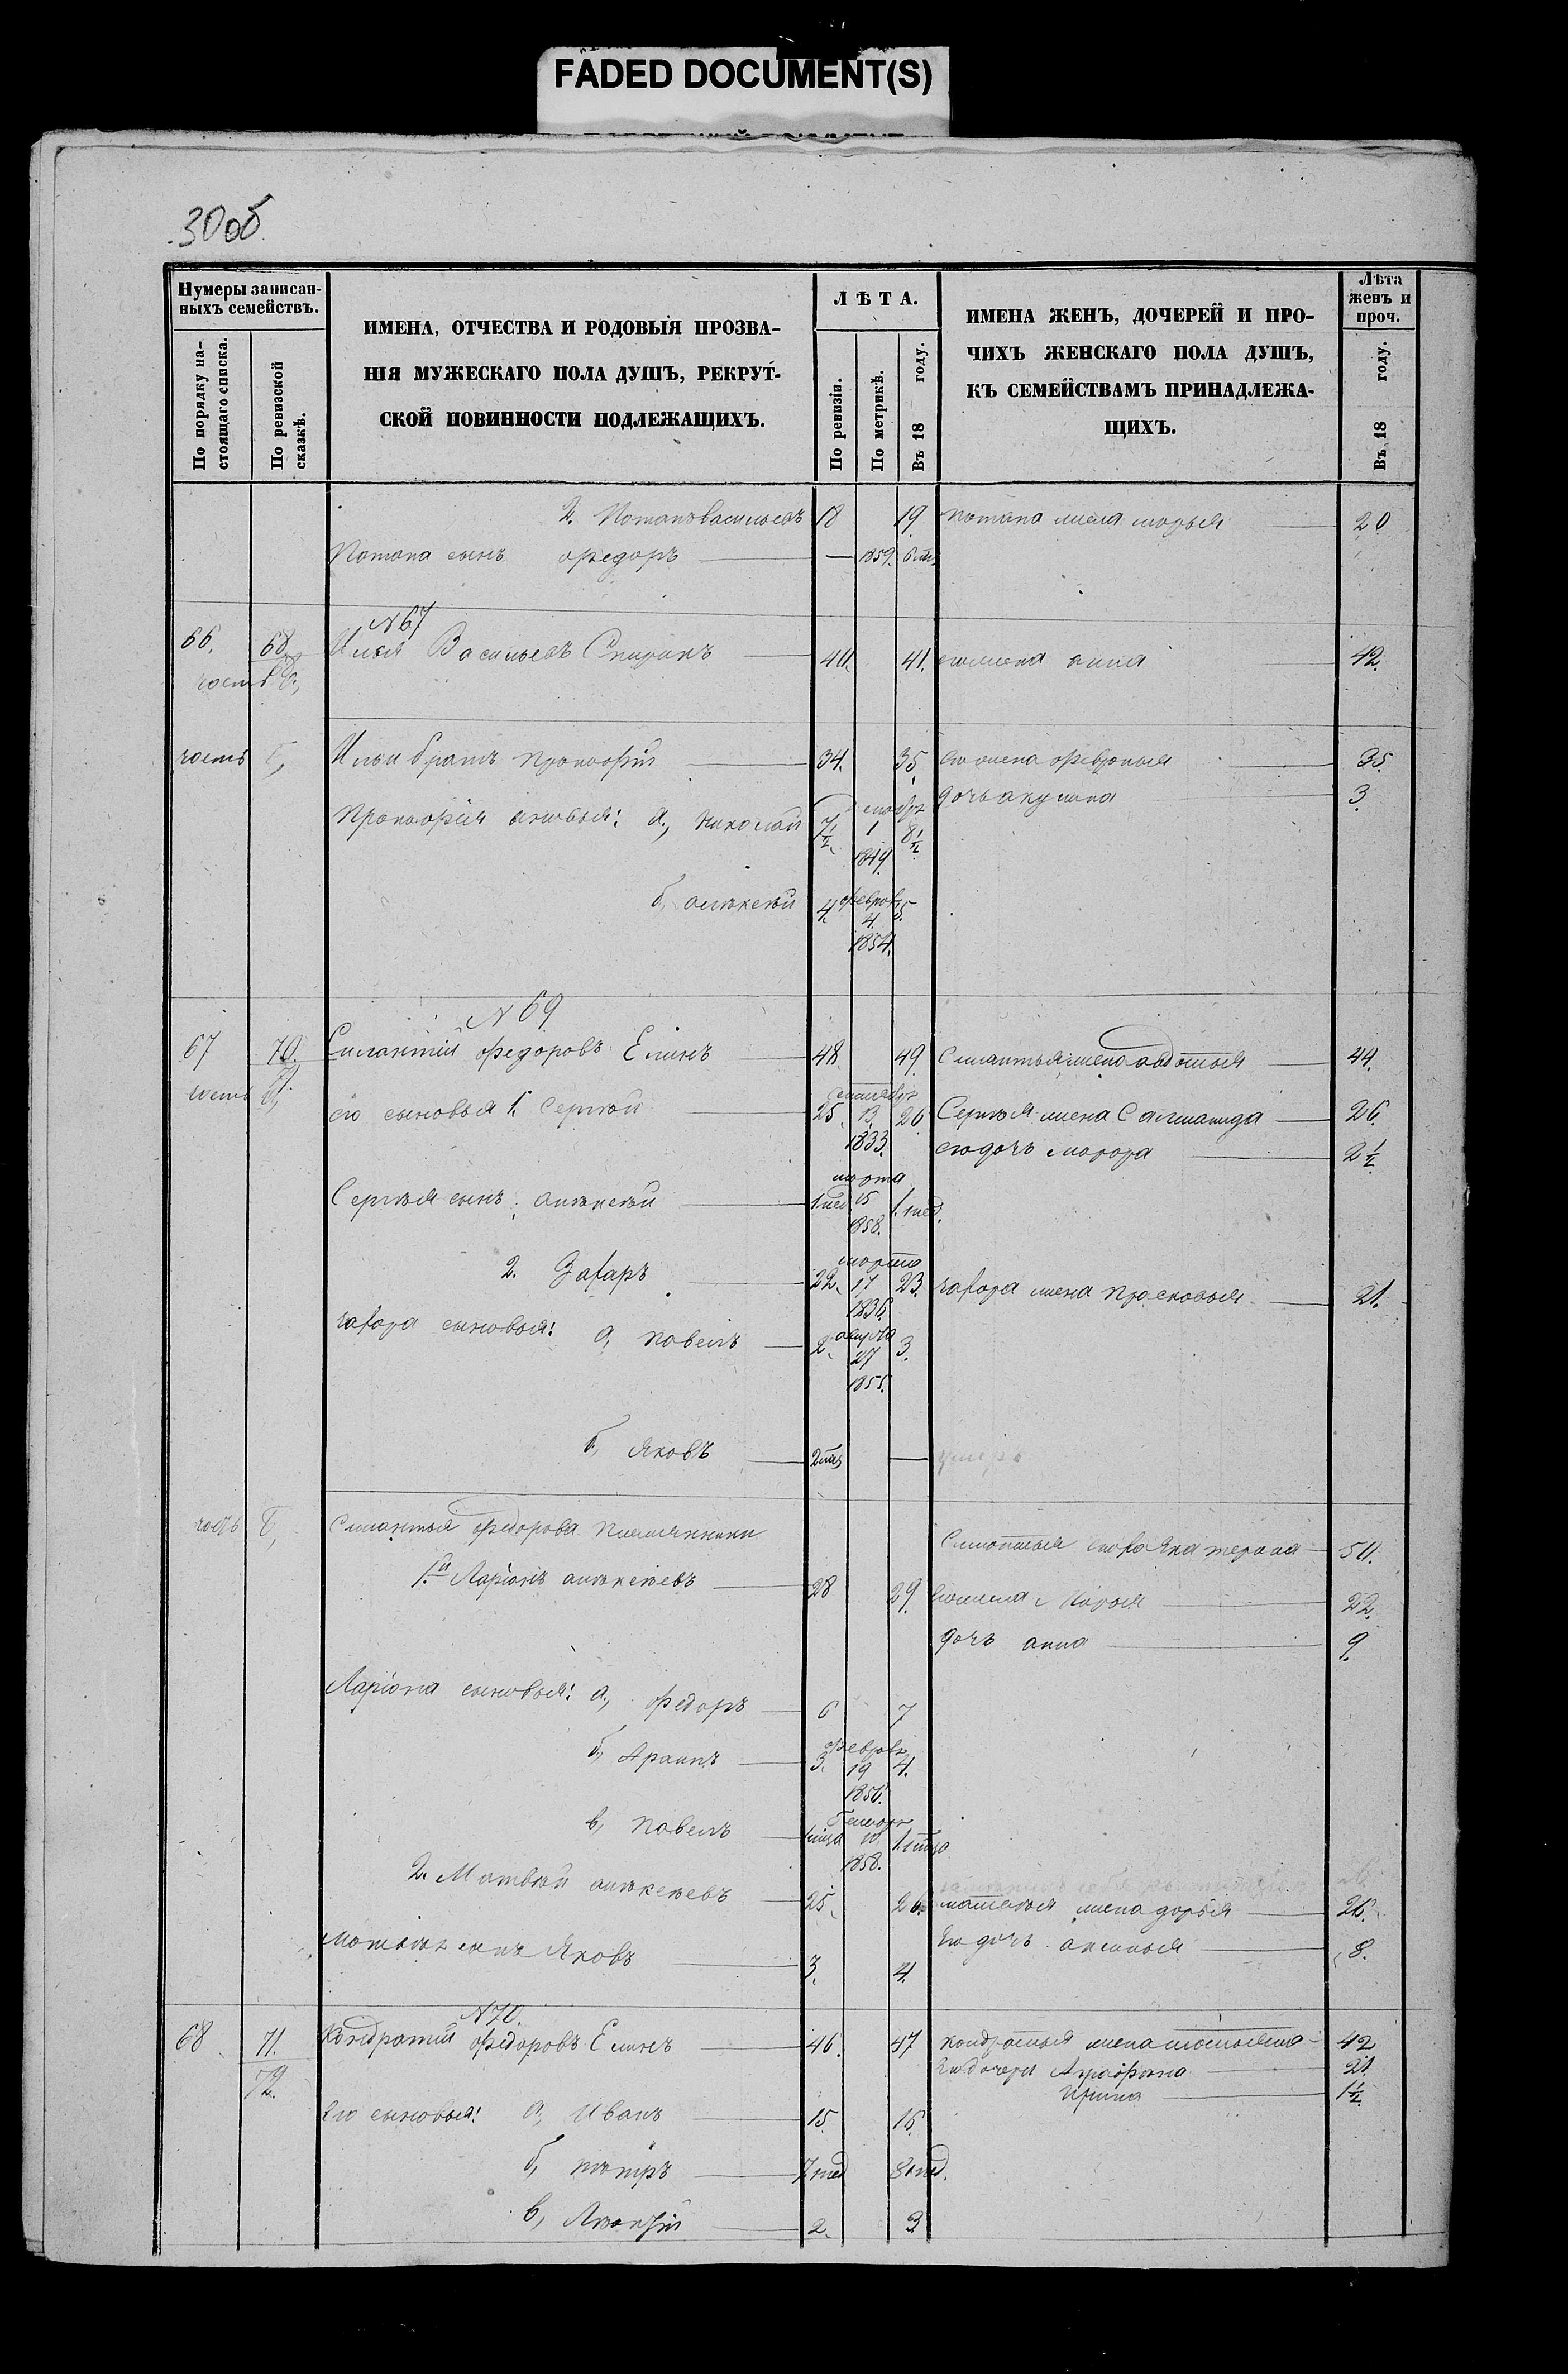 FADED DOCUMENT(S)
30об
Нумеры записан-
ныхъ семействъ.
По порядку на-
стоящаго списка.
По ревизской
сказкѣ.
ИМЕНА, ОТЧЕСТВА И РОДОВЫЯ ПРОЗВА-
НІЯ МУЖЕСКАГО ПОЛА ДУШЪ, РЕКРУТ-
СКОЙ ПОВИННОСТИ ПОДЛЕЖАЩИХЪ.
ЛѢТА.
По ревизіи.
По метрикѣ.
Въ 18 году.
ИМЕНА ЖЕНЪ, ДОЧЕРЕЙ И ПРО-
ЧИХЪ ЖЕНСКАГО ПОЛА ДУШЪ,
КЪ СЕМЕЙСТВАМЪ ПРИНАДЛЕЖА-
ЩИХЪ.
Лѣта
женъ и
проч.
Въ 18 году.
2. Потапъ Васильевъ 18 19. Потапа жена марья 20
Потапа сынъ федоръ — 1859.
N 67
66. 68 Илья Васильевъ 40. 41. его жена анна 42.
часть
часть Б, Ильи братъ Прокофій 34. 35. его жена февронья 35.
дочь акулина 3
Прокофія сыновья: а, Николай 7½ 1 8½
1849.
б, алѣксѣй 4. феврал 5.
4.
1854.
N 69
67 70. Силантій федоровъ Елинъ 48. 49. Силантья жена авдотья 44.
71.
часть
его сыновья 1. Сергѣй 25. 13. 26. Сергѣя жена Саламанида 26.
1833. его дочь 2½
марта
Сергѣя сынъ алѣксѣй 1 нед 15 1. нед.
1858.
марта
2. Захаръ 22. 17 23. захара жена Прасковья 21.
1836.
захара сыновья: а, павелъ 2. августа 3.
27
1855.
б, Яковъ — умеръ
часть Б, Силантья федорова племянники
Силантья сноха Екатерина 50.
1.й Ларіонъ алѣксѣевъ 28 29. его жена Марья 22.
дочь анна 9.
Ларіона сыновья: а, федоръ 6 7
феврал
б, 3. 19 4.
1856.
в, павелъ
1858.
2. Матвѣй алѣксѣевъ 25. 26. матвѣя жена дарья 26.
его дочь аксинья 8.
матвѣя сынъ Яковъ 3. 4.
N 70.
68 71. Кондратій федоровъ Елинъ 46. 47 кондратья жена татьяна 42
72. его дочери Аграфена 21.
Ирина 1½
Его сыновья: а, Иванъ 15. 16.
б, пѣтръ 7 нед 8 нед.
в, 2. 3